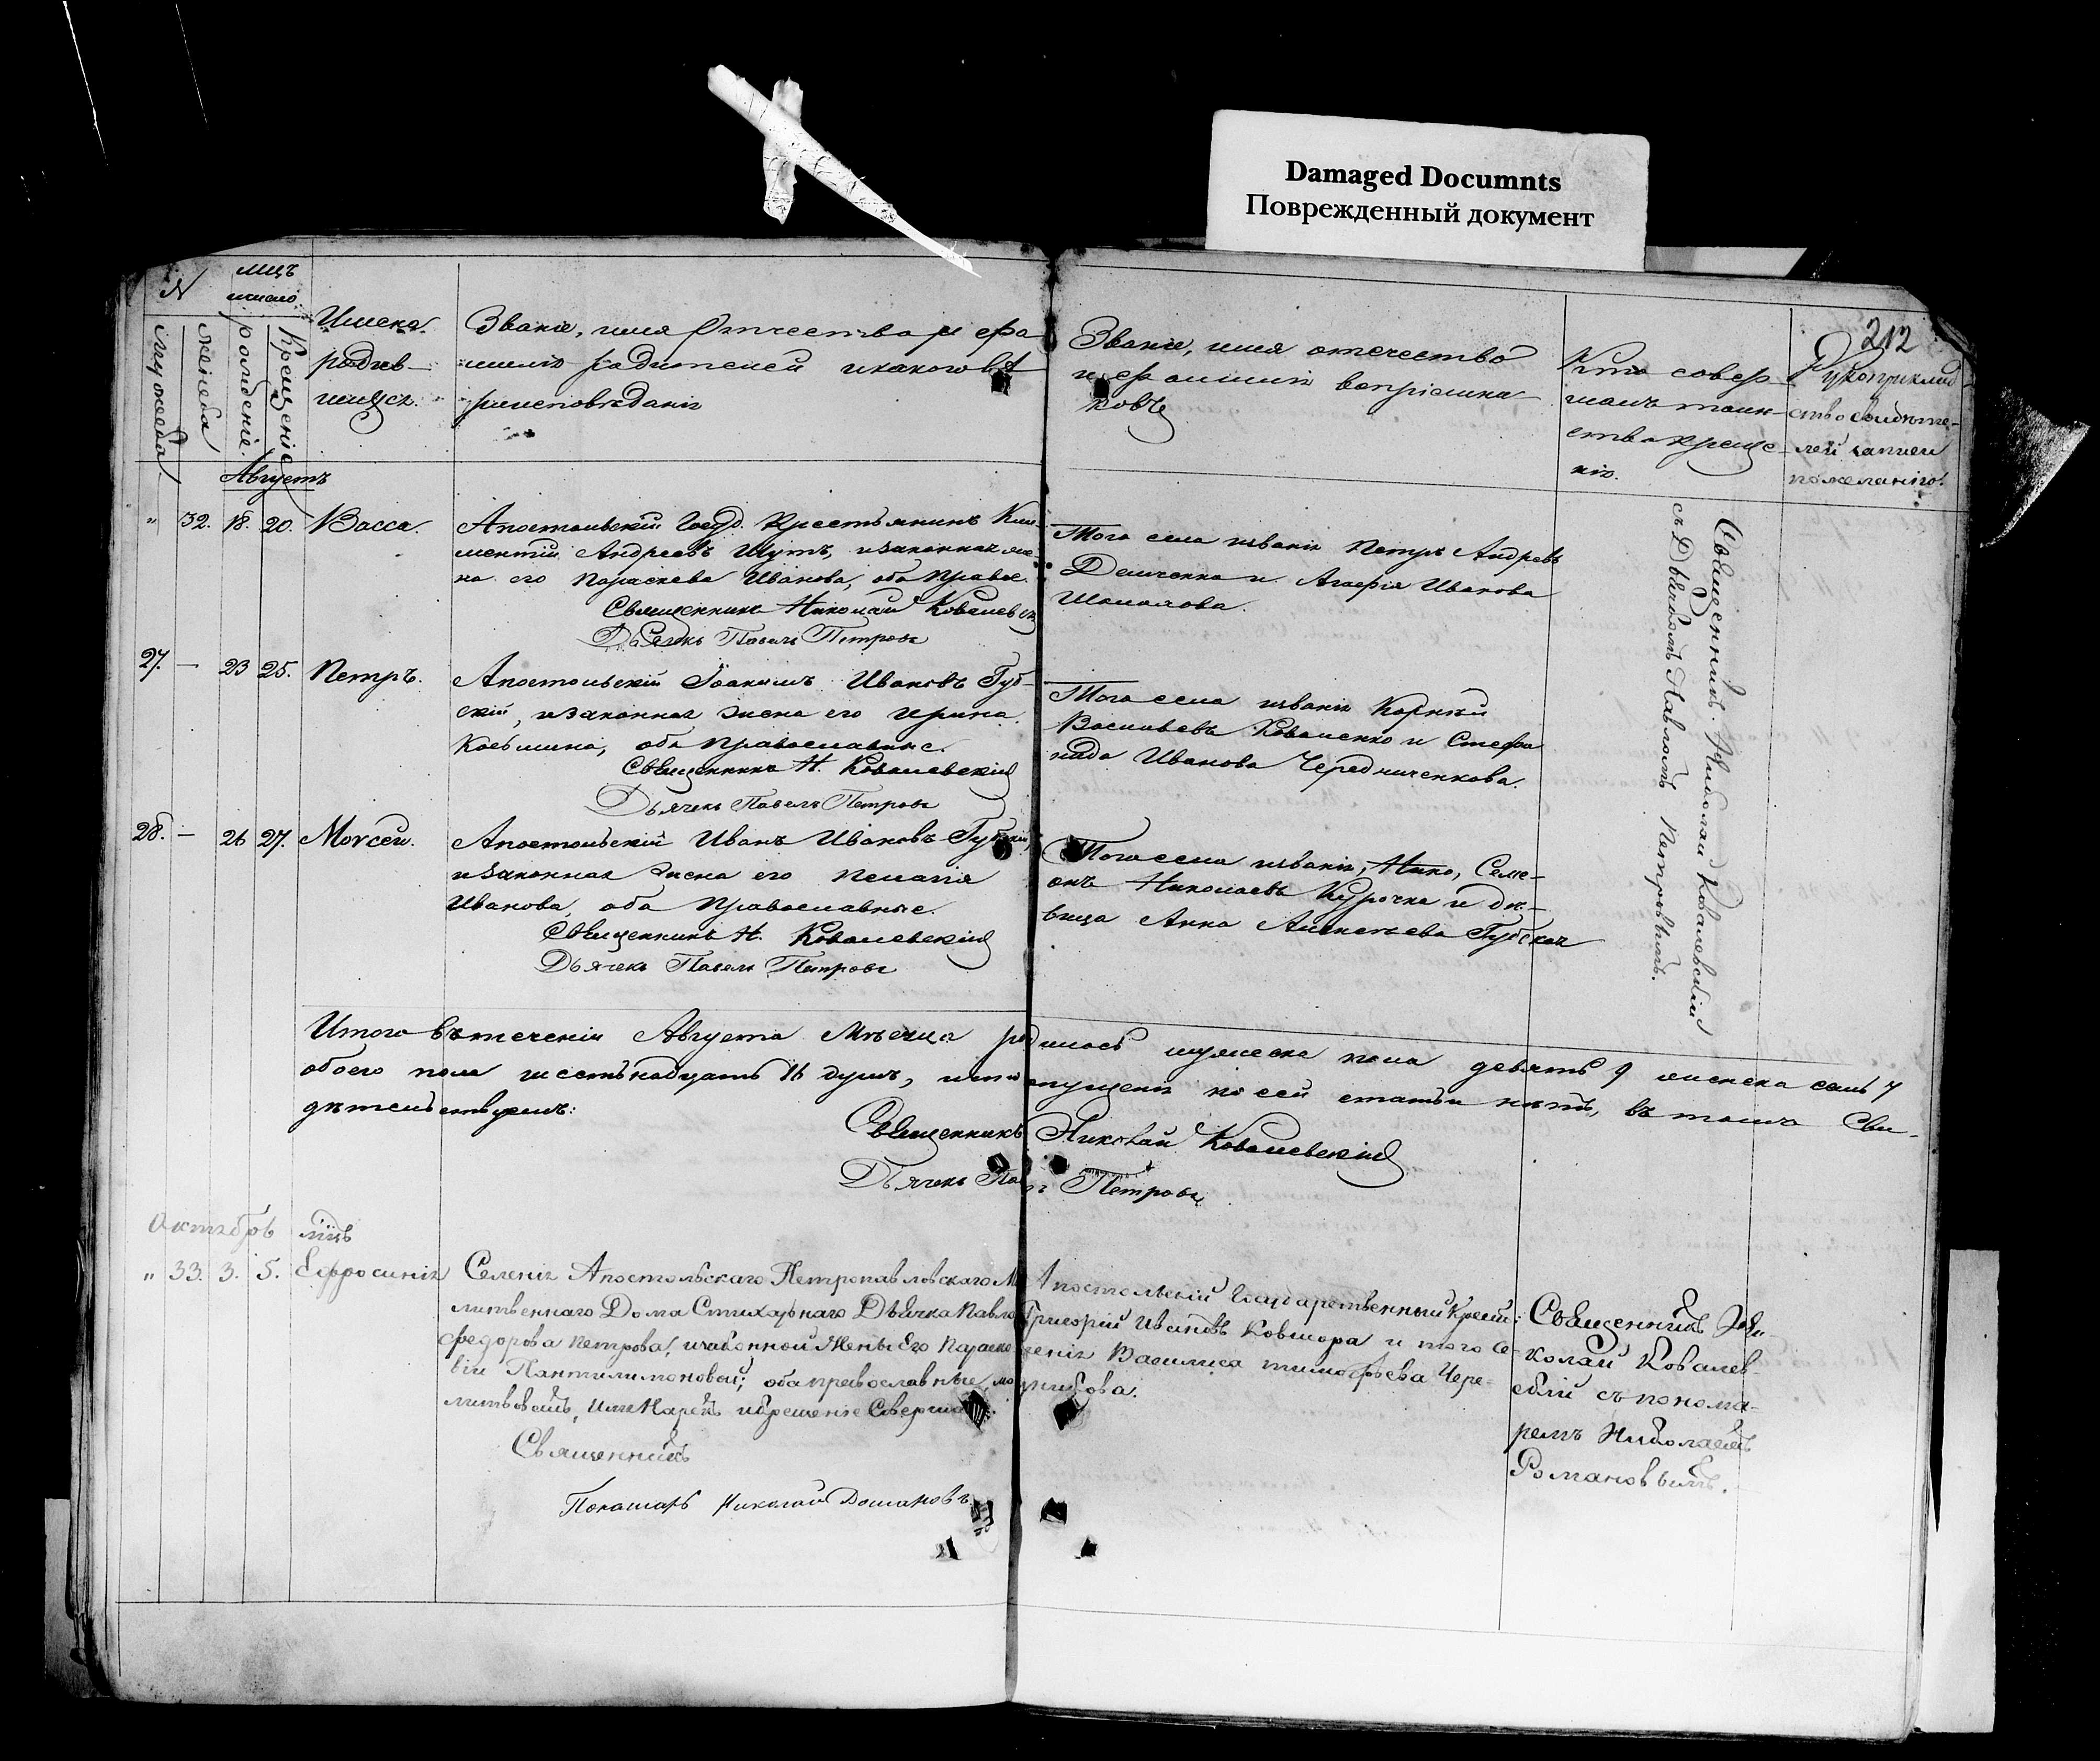 Damaged Documnts
Поврежденный документ
212
N
мцъ
число
мужеска.
женска
рожденіе.
Крещеніе
Имена
родив-
шихся.
Званіе, имя Отчество и фа-
милія родителей и какого вѣ-
роисповѣданія
Званіе, имя отечество
и фамилія воспріемни-
ковъ
Кто совер-
шалъ таин-
ство креще-
нія.
Рукоприклад-
ство свидѣте-
лей записи
по желанію.
Августъ
" 32. 18. 20. Васса.
Апостольскій Госуд. Крестьянинъ Кли-
ментій Андреевъ Шутъ, и законная же-
на его Параскева Иванова, оба правос.
Священникъ Николай Ковалевскій
Дьячекъ Павелъ Петровъ
Того села и званія Петръ Андреевъ
Демченко и Агафія Иванова
Шаповалова.
Священникъ Николай Ковалевскій
съ Дьячкомъ Павломъ Петровымъ.
27. — 23 25. Петръ.
Апостольскій Іоакимъ Ивановъ Губ-
скій, и законная жена его Ирина
Косьмина, оба православные.
Священникъ Н. Ковалевскій
Дьячекъ Павелъ Петровъ
Того села и званія Корнѣй
Васильевъ Коваленко и Стефа-
нида Иванова Чередниченкова.
28. — 26 27. Моѵсей.
Апостольскій Иванъ Ивановъ Губскій,
и законная жена его Пелагія
Иванова, оба православные.
Священникъ Н. Ковалевскій
Дьячекъ Павелъ Петровъ
Того села и званія, Нико, Симе-
онъ Николаевъ Курочка и дѣ-
вица Анна Алексѣева Губская
Итого въ теченіи Августа Мѣсяца родилось мужеска пола девять 9 женска семь 7
обоего пола шестьнадцать 16 душъ, и что опущенія по сей статьи нѣтъ, въ томъ Сви-
дѣтельствуемъ:
Священникъ Николай Ковалевскій
Дьячекъ Павелъ Петровъ
Октябрь мцъ
" 33. 3. 5. Евфросинія
Селенія Апостольскаго Петропавловскаго Мо-
литвеннаго Дома Стихарнаго Дьячка Павла
Федорова Петрова, и законной Жены Его Параске-
віи Пантилимоновой; оба православные, мо-
литвовалъ, имя Нарекъ и Крещеніе Совершалъ.
Священникъ
Пономарь Николай Романовъ
Апостольскій Государственный Крест:
Григорій Ивановъ Ковшора и того се-
ленія Василиса Тимофѣева Чере-
Священникъ Ни-
колай Ковалев-
скій съ понома-
ремъ Николаемъ
Романовымъ.